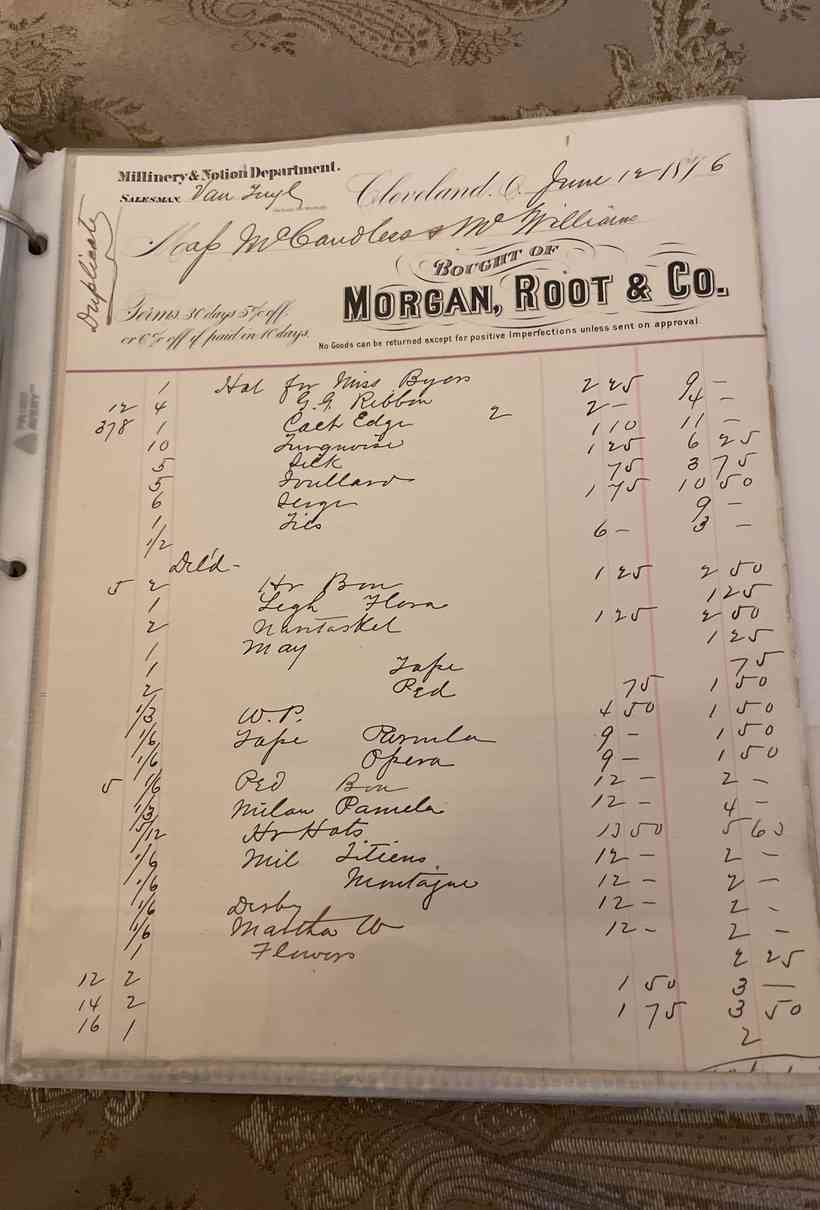 Millinery & Notion Department.
SALESMAN, Van Tuyl
Cleveland, O. June 12 1876
Duplicate
McCandless & McWilliams
BOUGHT OF
MORGAN, ROOT & CO.
Terms, 30 days 5% off.
or 6% off if paid in 10 days.
No Goods can be returned except for positive Imperfections unless sent on approval.
1 Hat for Miss Byers 2 25
12 4 G.G. Ribbon 2 — 9 —
378 1 Edge 2 1 10 4 —
10 Turquoise 1 25 11 —
5 Silk 75 6 25
5 Foullard 1 75 3 75
6 Serge 10 50
1 Ties 9 —
1/2 6 — 3 —
Del'd —
5 2 Hr Bon 1 25 2 50
1 Legh Flora 1 25
2 Nantasket 1 25 2 50
1 May 1 25
1 Tape 75
2 Ped 75 1 50
1/3 W.P. 4 50 1 50
1/6 Tape 9 — 1 50
1/6 Opera 9 — 1 50
5 1/6 Ped Bon 12 — 2 —
1/3 Milan Pamela 12 — 4 —
5/12 Hr Hats 13 50 5 63
1/6 Mil Titiens 12 — 2 —
1/6 Montague 12 — 2 —
1/6 Derby 12 — 2 —
1/6 Martha W 12 — 2 —
1 Flowers 2 25
12 2 1 50 3 —
14 2 1 75 3 50
16 1 2